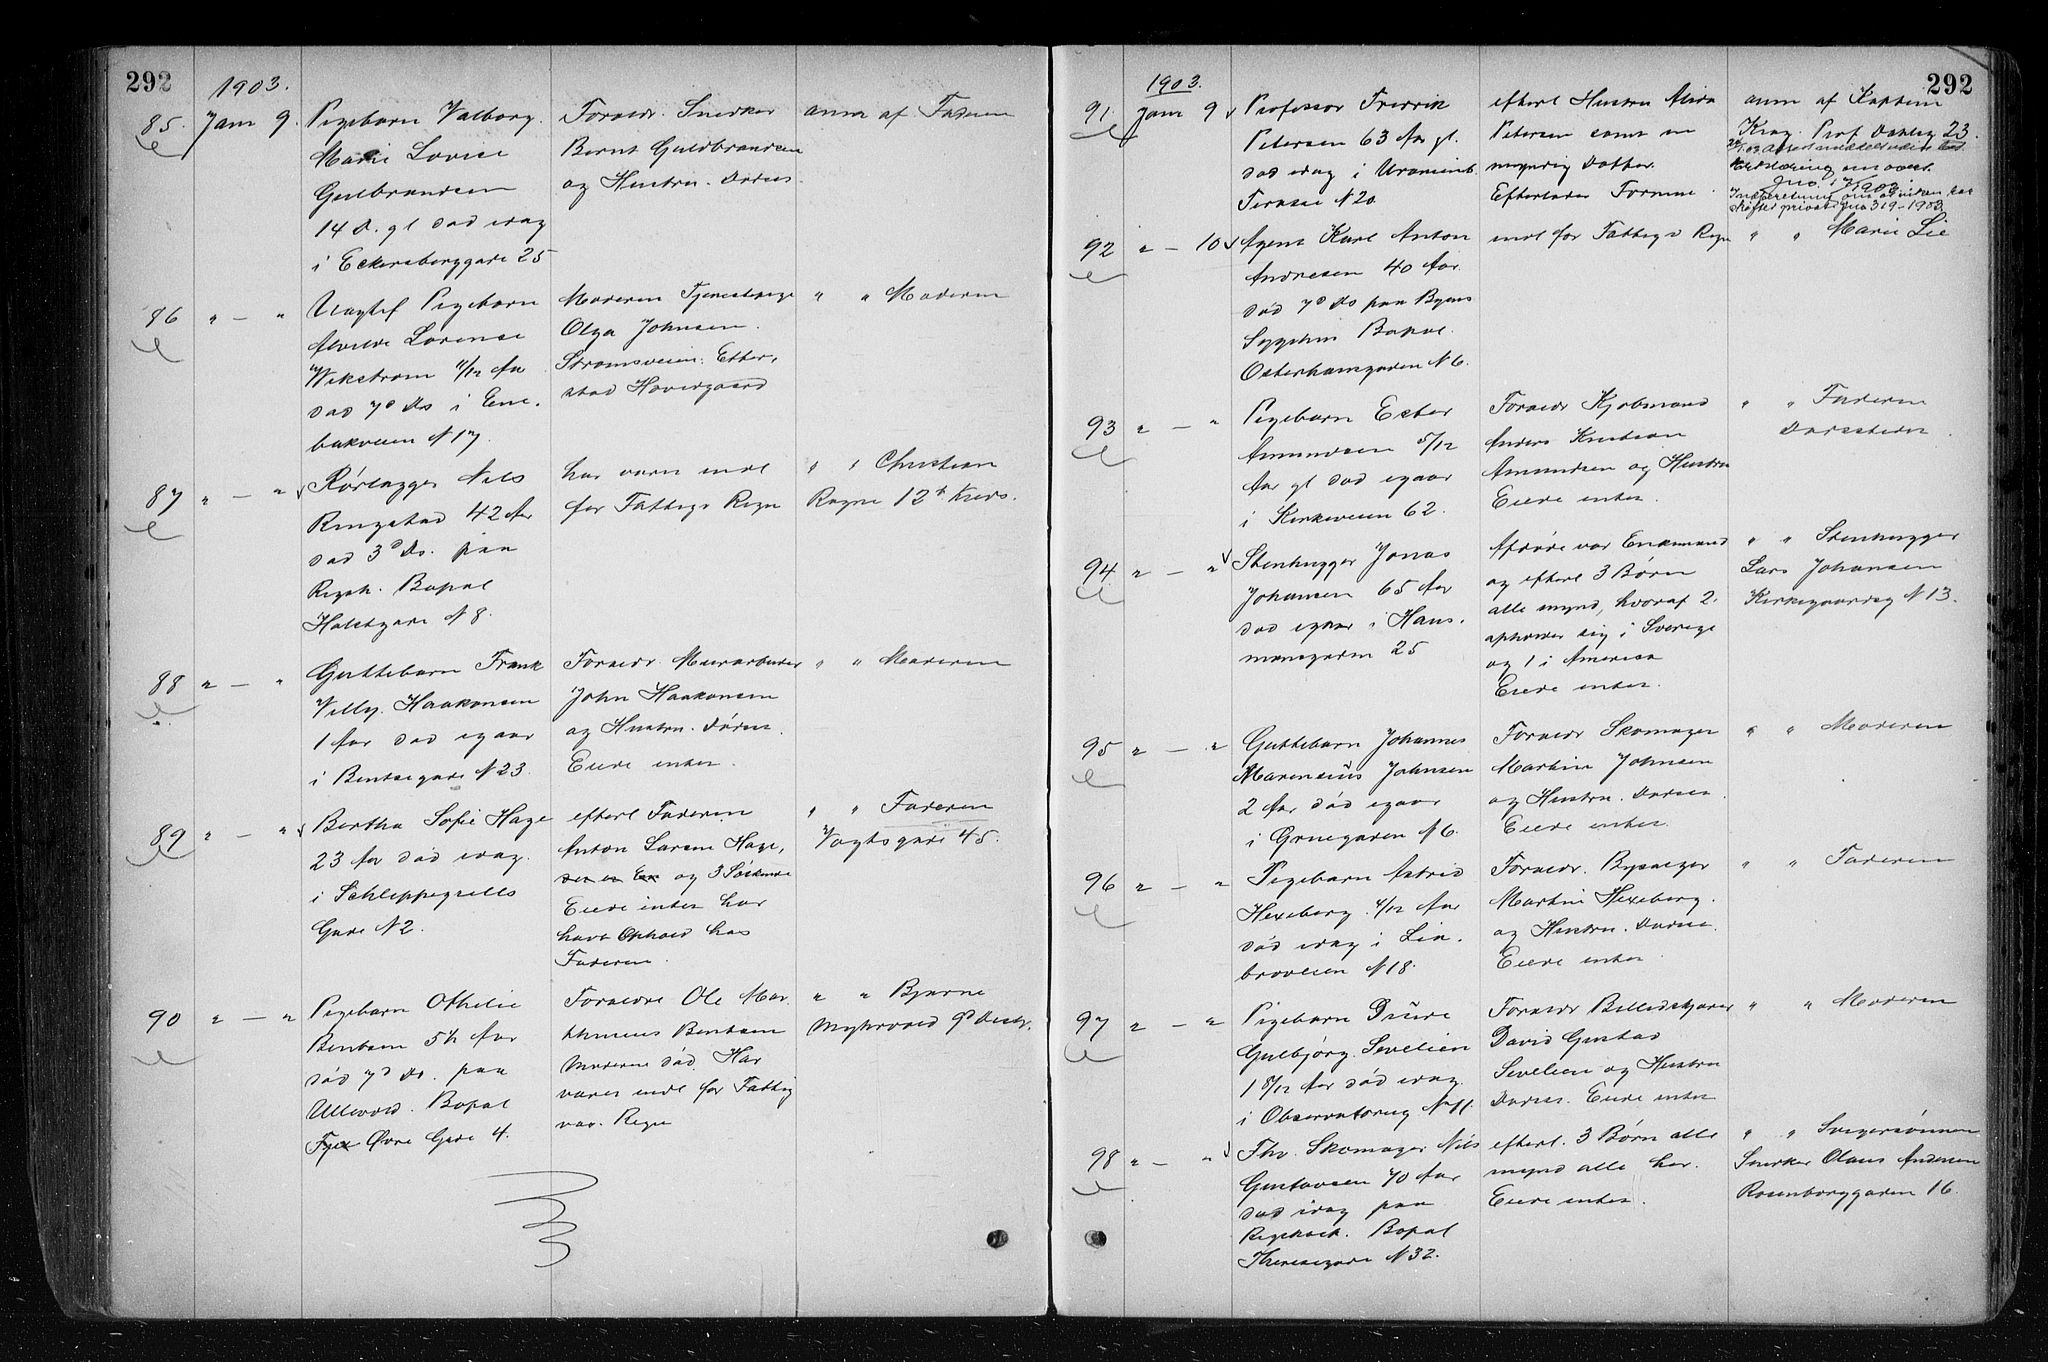 292
1903.
85. Jan 9. Pigebarn Valborg
Marie Lovise
Gulbrandsen
14 D. gl død idag
i Eckersberggade 25
Forældr. Snedker
Bernt Guldbrandsen
og Hustru. Døds
anm af Faderen
86 " — " Uægtef Pigebarn
Alvilde Lovense
Wikstrøm 11/12 Aar
død 7d Ds i Ene-
bakveien N 17.
Moderen Tjenestepige
Olga Johnsen.
Strømsveien. Etter-
stad Hovergaard
" " Moderen
87 " — " Rørlægger Nils
Ringstad 42 Aar
død 3d Ds. paa
Rigsh. Bopæl
Holstgade N 8.
har været indl
for Fattigv Regn
" " Christian
Rogne 12te Kreds.
88 " — " Guttebarn Frank
Villy. Haakonsen
1 Aar død igaar
i Bentsegade N 23.
Forældr. Murarbeider
John Haakonsen
og Hustru. Døds.
Eiede intet.
" " Moderen
89 " — " Bertha Sofie Hage
23 Aar død idag.
i Schleppegrells
Gade N 2.
efterl Faderen
Anton Larsen Hage,
og 3 Søskende
Eiede intet har
havt Ophold hos
Faderen.
" " Faderen
Vogtsgade 45.
90 " — " Pigebarn Othilie
Bentsen 5½ Aar
død 7d Ds. paa
Ullevold. Bopæl
Øvre Gade 4.
Forældre Ole Mar-
thinius Bentsen
Moderen død. Har
været indl for Fattig
væs. Regn
" " Bjarne
Myhrvold 9d Distr.
292
1903.
91. Jan 9 Professor Fredrik
Petersen 63 Aar gl.
død idag i Uranienb.
Terasse N 20.
efterl Hustru Alvine
Petersen samt en
myndig Datter.
Efterlader Formue.
anm af Kaptein
Krag. Prof Dahlsg 23.
Erklæring om overt.
Jno. 1903.
Indberetning om at Enken har
skiftet privat Jno 319-1903.
92 " — 10 Agent Karl Anton
Andresen 40 Aar.
død 7d Ds paa Byens
Sygehus Bopæl.
Osterhausgaden N 6.
indl for Fattigv Regn
" " Marie Lie
93 " — " Pigebarn Ester
Amundsen 5/12
Aar gl død igaar
i Kirkeveien 62.
Forældr Kjøbmand
Anders Kristian
Amundsen og Hustru
Eiede intet.
" " Faderen
Dødsstedet.
94 " — " Stenhugger Jonas
Johansen 65 Aar
død igaar i Haus-
mansgaden 25
Afdøde var Enkemand
og efterl 3 Børn
alle mynd, hvoraf 2.
opholder sig i Sverige
og 1 i America
Eiede intet.
" " Stenhugger
Lars Johansen
Kirkegaardsg N 13.
95 " — " Guttebarn Johannes
Marensius Johnsen
2 Aar død igaar
i Grnegaden N 6.
Forældr Skomager
Martin Johnsen
og Hustru. Døds.
Eiede intet.
" " Moderen
96 " — " Pigebarn Astrid
Hexeberg 4/12 Aar
død idag i Lia-
broveien N 18.
Forældr. Bysælger
Martin Hexeberg.
og Hustru. Døds.
Eiede intet.
" " Faderen
97 " — " Pigebarn Duve
Gulbjørg Sevelien
1 8/12 Aar død idag
i Observatorieg N 11.
Forældr Billedskjærer
David Gustad
Sevelien og Hustru
Døds. Eiede intet
" " Moderen
98 " — " Fhv. Skomager Nils
Gustavsen 70 Aar
død idag paa
Rigshosp. Bopæl
Theresegade N 32.
efterl. 3 Børn alle
mynd alle her.
Eiede intet.
" " Svigersønnen
Snedker Olaus Andersen
Rosenborggaden 16.